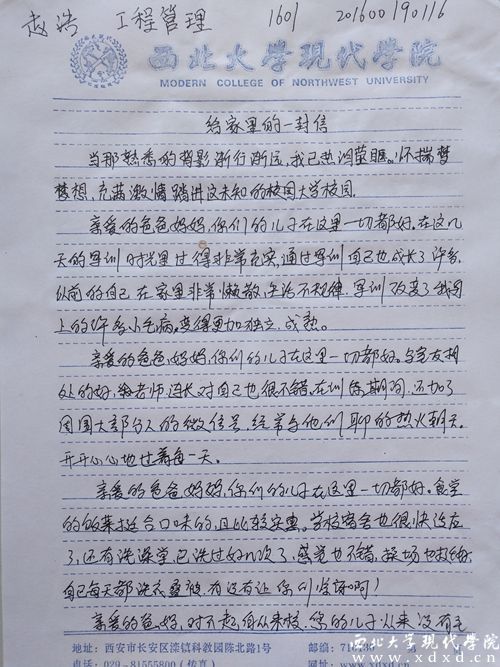 赵浩 工程管理 1601 201600190116
西北大学现代学院
MODERN COLLEGE OF NORTHWEST UNIVERSITY
给家里的一封信
当那熟悉的背影渐行渐远,我已热泪萦眶。怀揣梦
梦想,充满激情踏进这未知的校园大学校园。
亲爱的爸爸妈妈,你们的儿子在这里一切都好。在这几
天的军训时光里过得非常充实,通过军训自己也成长了许多,
以前的自己在家里非常懒散,生活不规律,军训改变了我身
上的许多小毛病,变得更加独立,成熟。
亲爱的爸爸,妈妈,你们的儿子在这里一切都好。与室友相
处的好,老师,连长,对自己也很不错,在训练期间,还加了
周围大部分人的微信号,经常与他们聊的热火朝天。
开开心心地过着每一天。
亲爱的爸爸妈妈,你们的儿子在这里一切都好。食堂
的饭菜挺合口味的,且比较实惠。学校宿舍也很快适应
了,还有洗澡堂,已洗过好几次了,感觉也不错,操场也
自己每天都洗衣叠被,有没有让你们惊讶啊!
亲爱的爸妈,对不起,自从来校,您的儿子从来没有
地址:西安市长安区滦镇科教园陈北路1号 邮编:
电话:029-81555800(传真)
西北大学现代学院
www.xdxd.cn